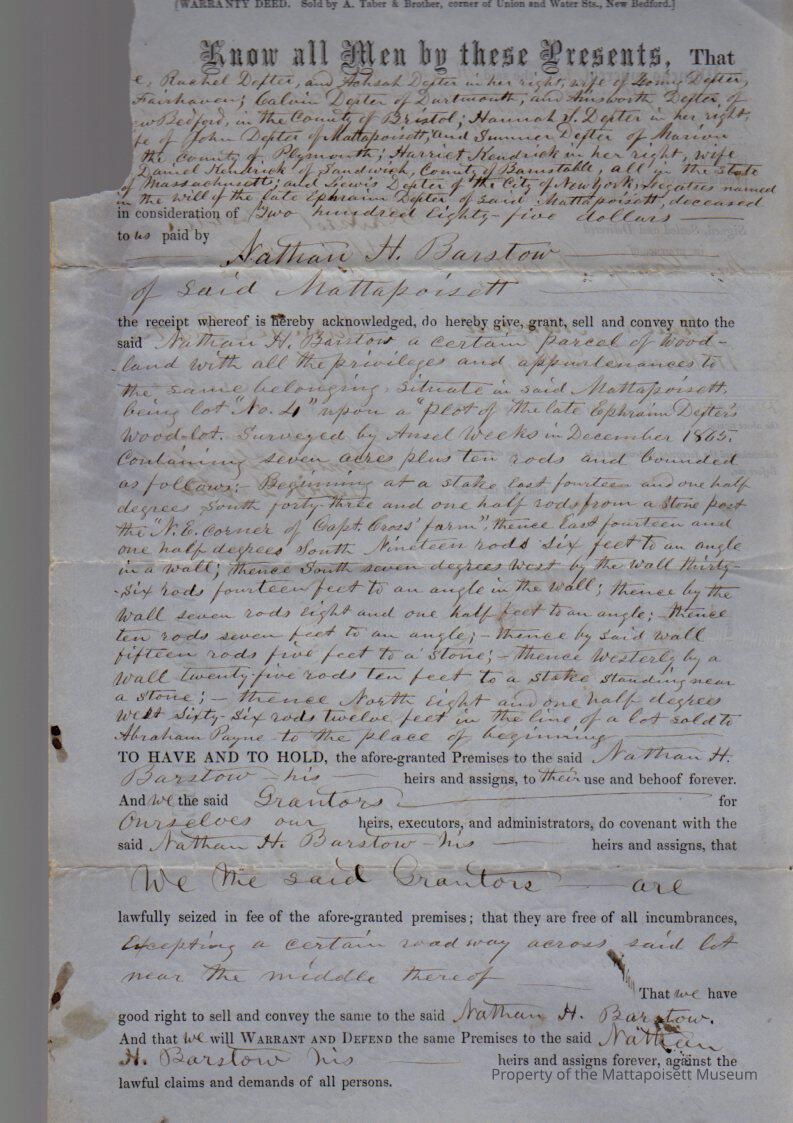 [WARRANTY DEED. Sold by A. Taber & Brother, corner of Union and Water Sts., New Bedford.]
Know all Men by these Presents, That
e, Rachel Dexter, and Achsah Dexter in her right, wife of Dexter,
Fairhaven; Calvin Dexter of Dartmouth; and Ainsworth Dexter, of
ew Bedford, in the County of Bristol; Hannah S. Dexter in her right,
fe of John Dexter of Mattapoisett, and Sumner Dexter of Marion
the County of Plymouth; Harriet Kendrick in her right, wife
Daniel Kendrick of Sandwich, County of Barnstable, all in the State
of Massachusetts; and Lewis Dexter of the City of New York, legatees named
in the will of the late Ephraim Dexter of said Mattapoisett, deceased
in consideration of Two hundred eighty-five dollars
to us paid by
Nathan H. Barstow
of said Mattapoisett
the receipt whereof is hereby acknowledged, do hereby give, grant, sell and convey unto the
said Nathan H. Barstow a certain parcel of wood-
-land with all the privileges and appurtenances to
the same belonging, situate in said Mattapoisett,
being lot "No. 4" upon a "Plot of the late Ephraim Dexter's
Wood-lot. Surveyed by Ansel Weeks in December 1865.
Containing seven acres plus ten rods and bounded
as follows:- Beginning at a stake East fourteen and one half
degrees South forty-three and one half rods from a stone post
the "N.E. corner of Capt. Cross' farm"; thence East fourteen and
one half degrees South Nineteen rods six feet to an angle
in a wall; thence South seven degrees West by the wall thirty-
-six rods fourteen feet to an angle in the wall; thence by the
wall seven rods eight and one half feet to an angle; thence
ten rods seven feet to an angle;- thence by said wall
fifteen rods five feet to a stone;- thence Westerly by a
wall twenty five rods ten feet to a stake standing near
a stone;- thence North eight and one half degrees
West sixty-six rods twelve feet in the line of a lot sold to
Abraham Payne to the place of beginning
TO HAVE AND TO HOLD, the afore-granted Premises to the said Nathan H.
Barstow his heirs and assigns, to their use and behoof forever.
And we the said Grantors for
Ourselves our heirs, executors, and administrators, do covenant with the
said Nathan H. Barstow his heirs and assigns, that
We the said Grantors are
lawfully seized in fee of the afore-granted premises; that they are free of all incumbrances,
Excepting a certain roadway across said lot
near the middle thereof
That we have
good right to sell and convey the same to the said Nathan H. Barstow.
And that we will WARRANT AND DEFEND the same Premises to the said Nathan
H. Barstow his heirs and assigns forever, against the
lawful claims and demands of all persons.
Property of the Mattapoisett Museum